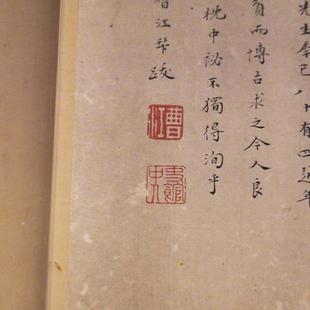 先生年已八十有四
而博古求之今人良
枕中祕不獨得洵乎
江跋
曹江